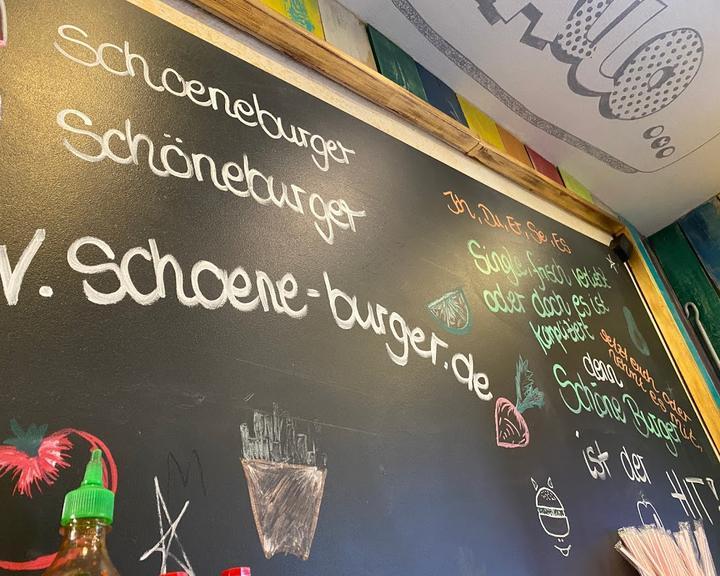 Schoeneburger
Schöneburger
W. Schoene-burger.de
Ich, Du, Er, Sie, Es
Single, frisch verliebt
oder doch es ist
kompliziert
setzt euch oder
nehmt es mit..
denn
Schöne Burger
ist der HIT